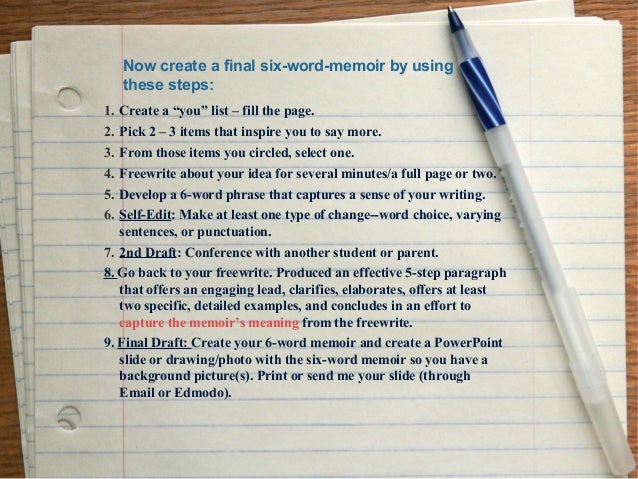 Now create a final six-word-memoir by using
these steps:
1. Create a “you” list – fill the page.
2. Pick 2 – 3 items that inspire you to say more.
3. From those items you circled, select one.
4. Freewrite about your idea for several minutes/a full page or two.
5. Develop a 6-word phrase that captures a sense of your writing.
6. Self-Edit: Make at least one type of change--word choice, varying
sentences, or punctuation.
7. 2nd Draft: Conference with another student or parent.
8. Go back to your freewrite. Produced an effective 5-step paragraph
that offers an engaging lead, clarifies, elaborates, offers at least
two specific, detailed examples, and concludes in an effort to
capture the memoir’s meaning from the freewrite.
9. Final Draft: Create your 6-word memoir and create a PowerPoint
slide or drawing/photo with the six-word memoir so you have a
background picture(s). Print or send me your slide (through
Email or Edmodo).